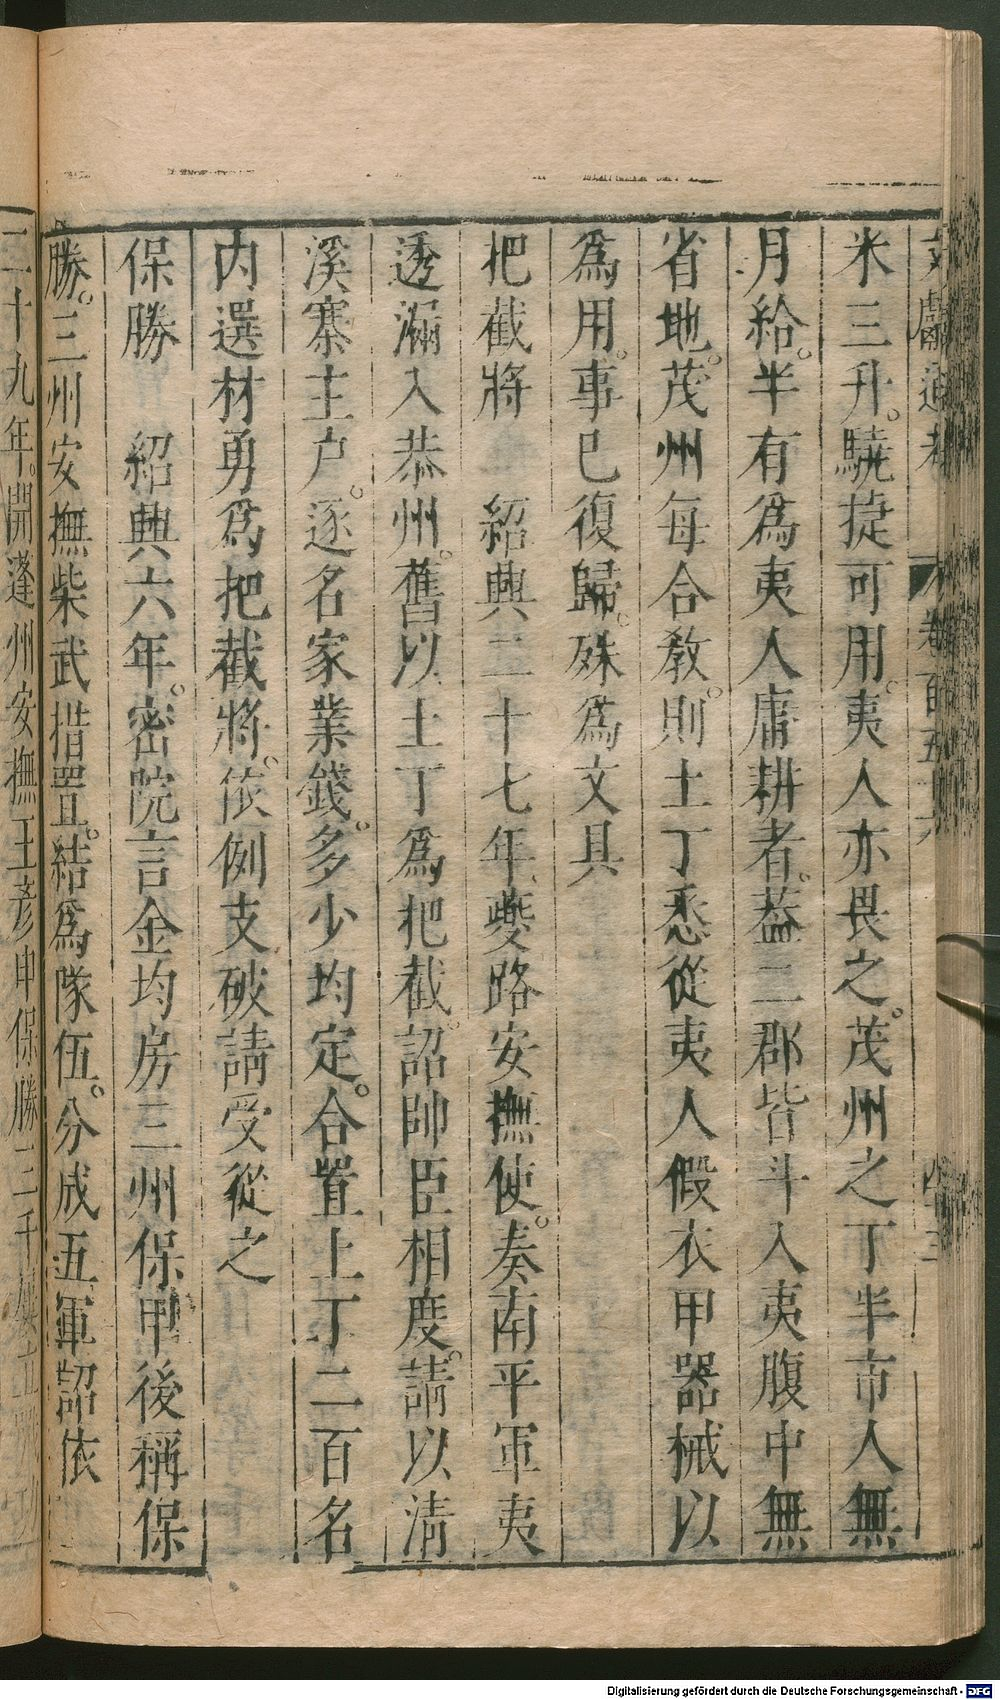 文獻通考 卷一百五十六 四三
米三升。驍捷可用。夷人亦畏之。茂州之丁半市人無
月給。半有爲夷人庸耕者。葢二郡皆斗入夷腹中無
省地。茂州每合教。則土丁悉從夷人假衣甲器械以
爲用。事已復歸。殊爲文具
把截將 紹興二十七年夔路安撫使。奏南平軍夷
透漏入恭州。舊以土丁爲把截。詔帥臣相度。請以清
溪寨主户。逐名家業錢。多少均定。合置土丁二百名
内選材勇爲把截將。依例支破請受從之
保勝 紹興六年。密院言金均房三州保甲後稱保
勝。三州安撫柴武措置。結爲隊伍。分成五軍詔依
二十九年。開達州安撫王彦申保勝三千
Digitalisierung gefördert durch die Deutsche Forschungsgemeinschaft - DFG